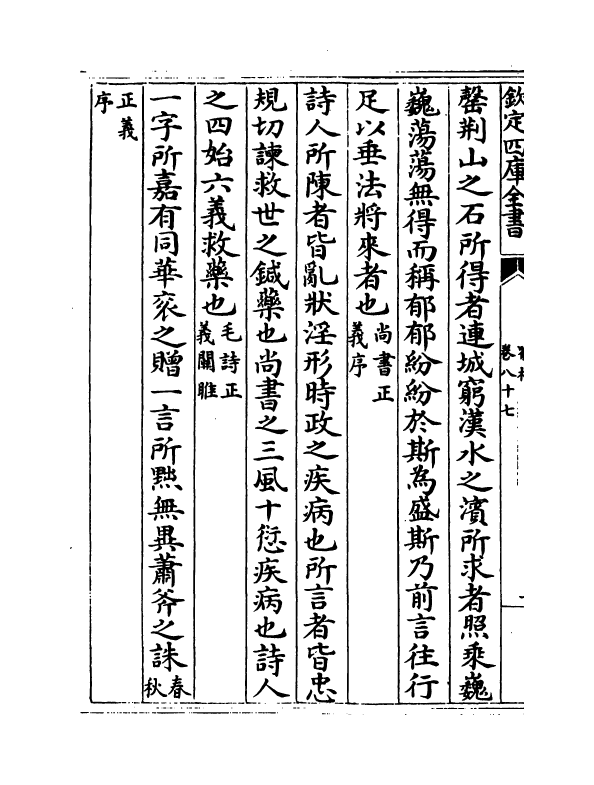 欽定四庫全書
卷八十七
罄荆山之石所得者連城窮漢水之濱所求者照乘巍
巍蕩蕩無得而稱郁郁紛紛於斯為盛斯乃前言往行
足以垂法將來者也尚書正義序
詩人所陳者皆亂狀淫形時政之疾病也所言者皆忠
規切諫救世之鍼藥也尚書之三風十愆疾病也詩人
之四始六義救藥也毛詩正義關雎
一字所嘉有同華衮之贈一言所黜無異蕭斧之誅春秋
正義序